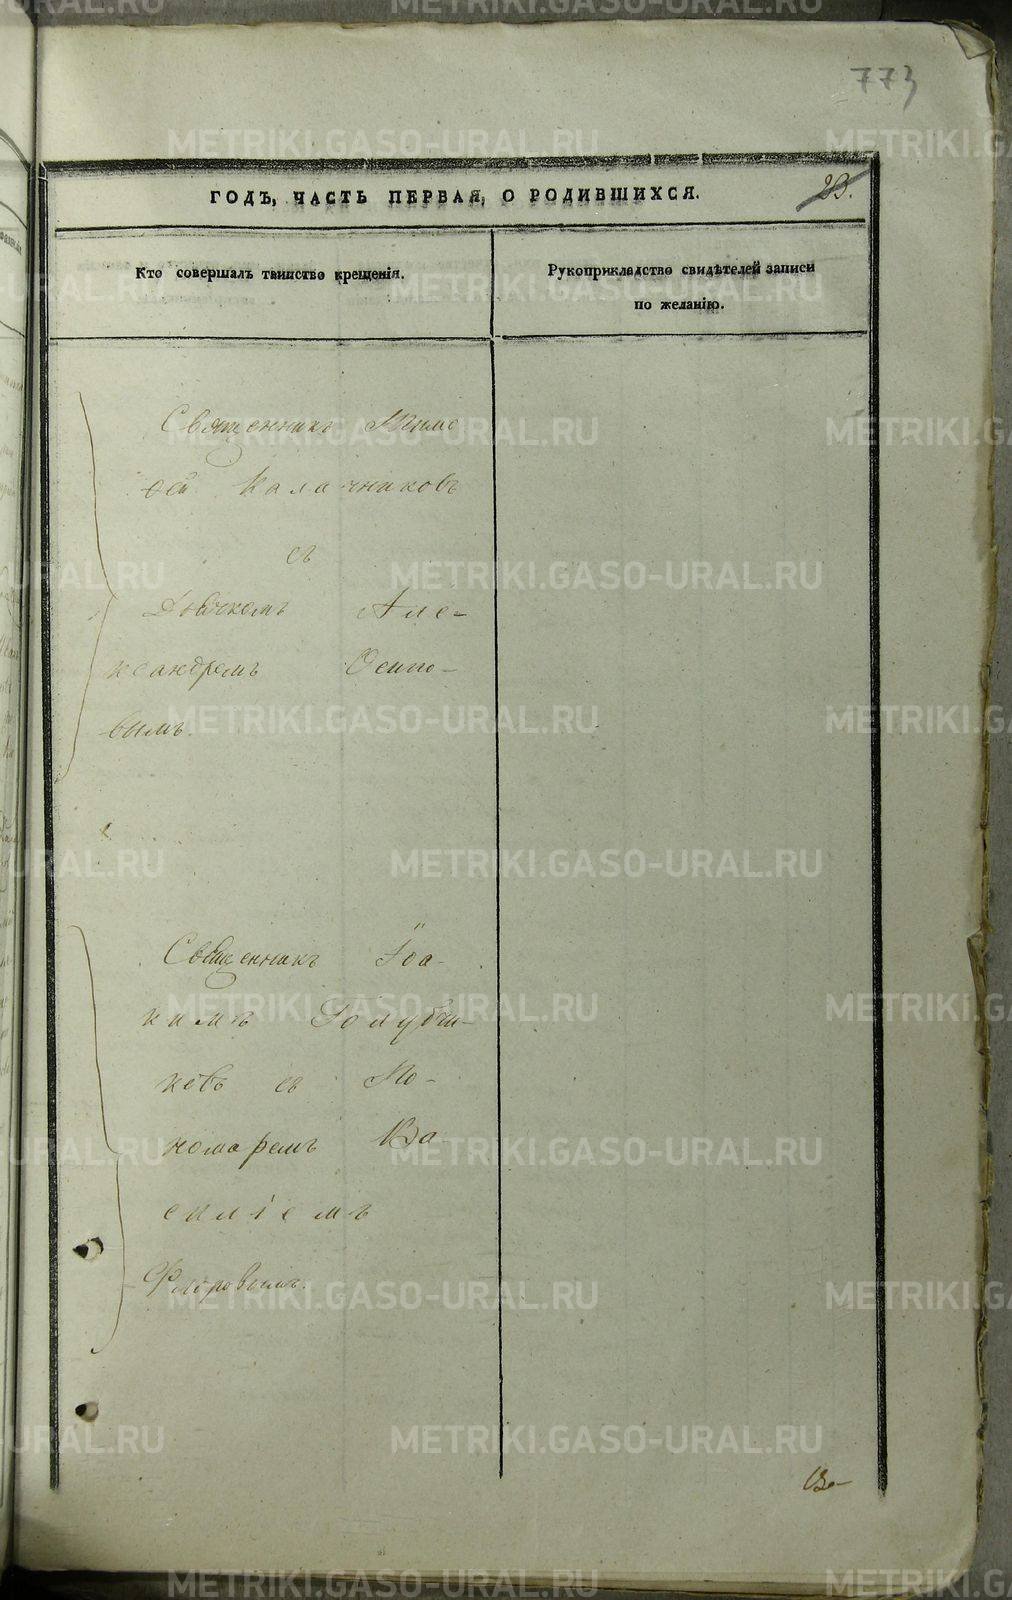 773
ГОДЪ, ЧАСТЬ ПЕРВАЯ, О РОДИВШИХСЯ.
23.
Кто совершалъ таинство крещенія.
Рукоприкладство свидѣтелей записи
по желанію.
Священникъ Тимо
ѳей Калачниковъ
съ
Дьячкомъ Але-
ксандромъ Осипо-
вымъ.
Священникъ Іоа-
кимъ Голубчи-
ковъ съ По-
номаремъ Ва
силіемъ
Флоровымъ.
METRIKI.GASO-URAL.RU